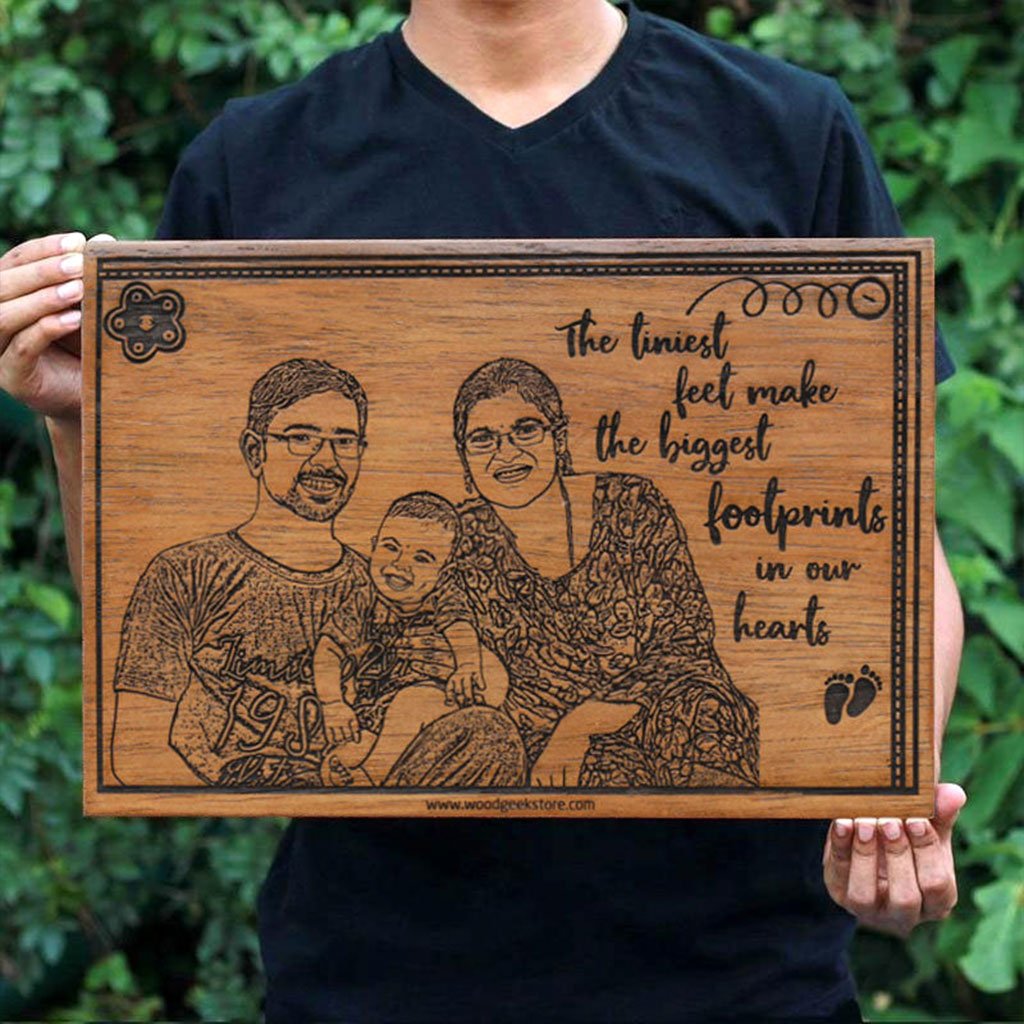 The tiniest
feet make
the biggest
footprints
in our
hearts
www.woodgeekstore.com